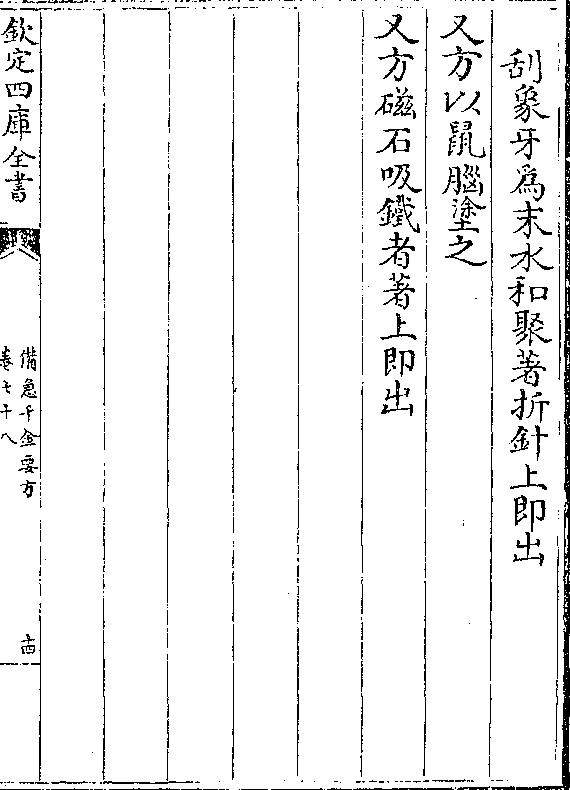 刮象牙為末水和聚著折針上即出
又方以鼠腦塗之
又方磁石吸鐵者著上即出
欽定四庫全書
備急千金要方
卷七十八
十四